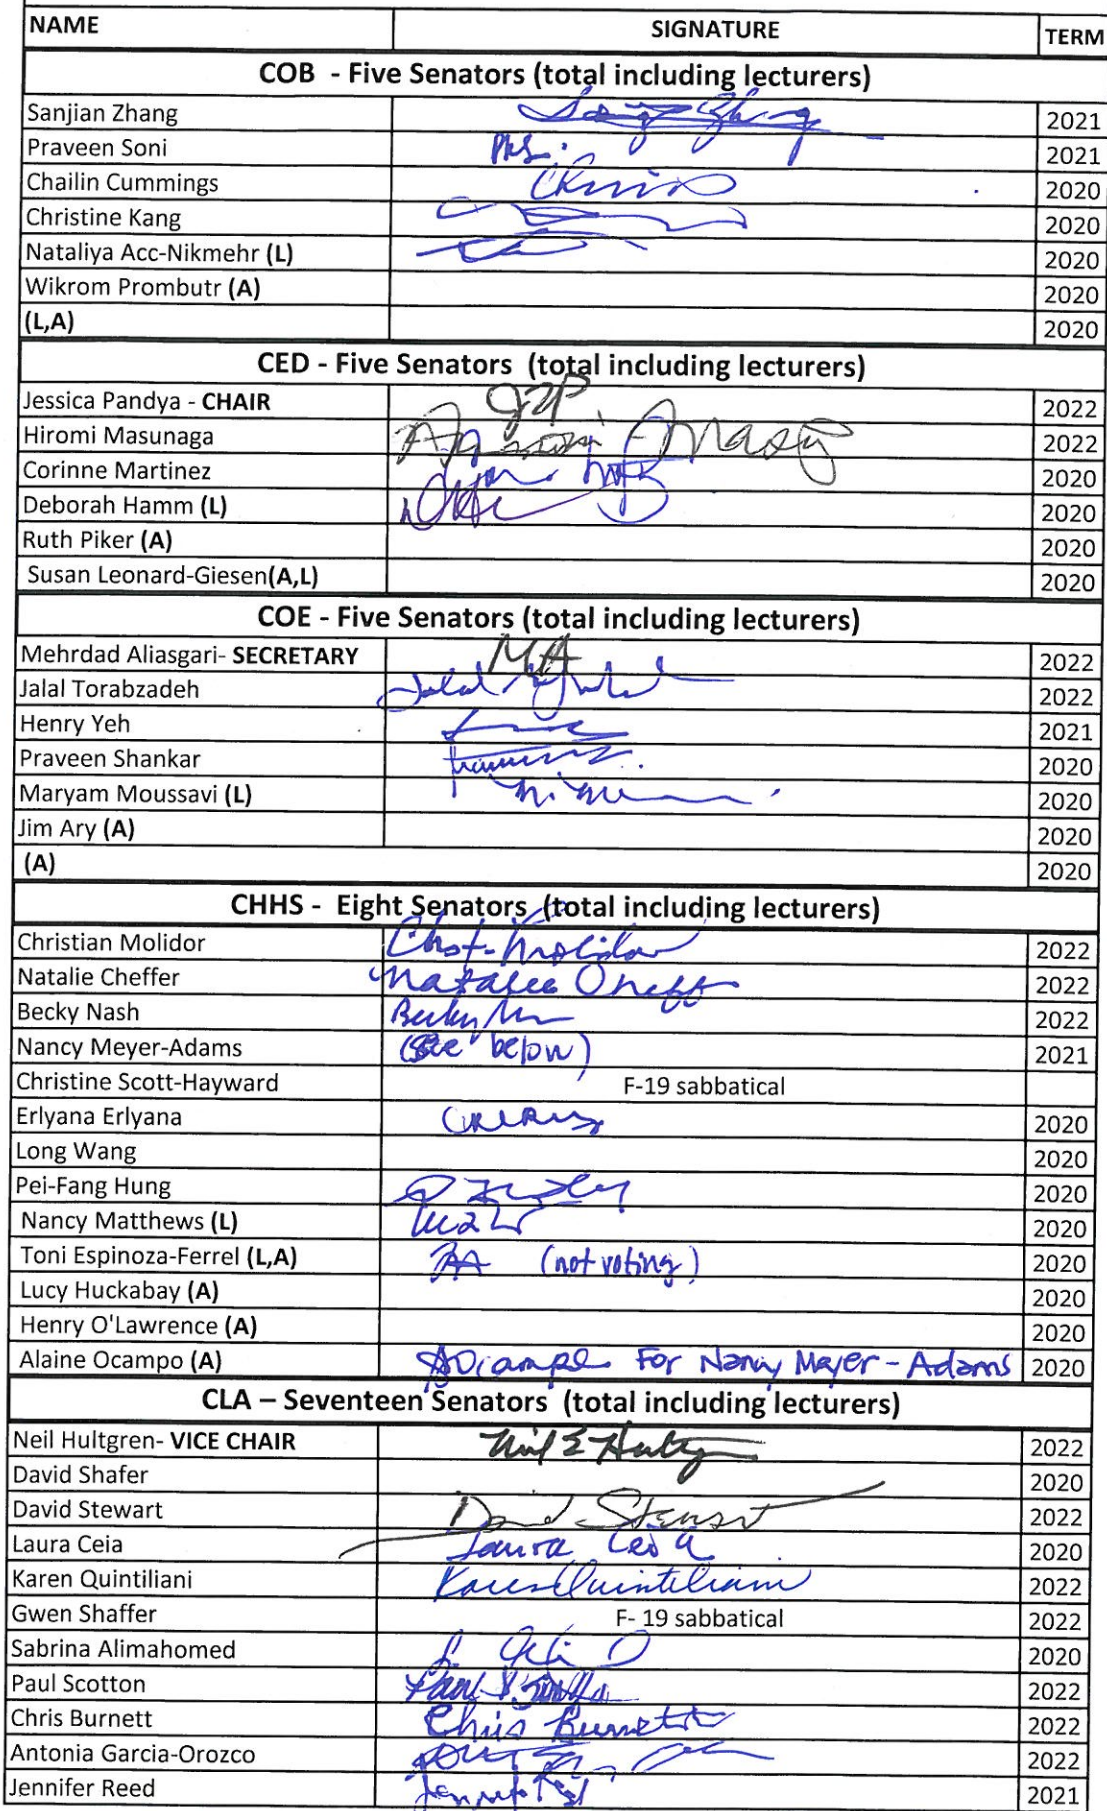 NAME SIGNATURE TERM
COB - Five Senators (total including lecturers)
Sanjian Zhang 2021
Praveen Soni 2021
Chailin Cummings 2020
Christine Kang 2020
Nataliya Acc-Nikmehr (L) 2020
Wikrom Prombutr (A) 2020
(L,A) 2020
CED - Five Senators (total including lecturers)
Jessica Pandya - CHAIR JZP 2022
Hiromi Masunaga 2022
Corinne Martinez 2020
Deborah Hamm (L) 2020
Ruth Piker (A) 2020
Susan Leonard-Giesen(A,L) 2020
COE - Five Senators (total including lecturers)
Mehrdad Aliasgari- SECRETARY MA 2022
Jalal Torabzadeh Jalal 2022
Henry Yeh 2021
Praveen Shankar 2020
Maryam Moussavi (L) 2020
Jim Ary (A) 2020
(A) 2020
CHHS - Eight Senators (total including lecturers)
Christian Molidor Molidor 2022
Natalie Cheffer Natalie Cheff 2022
Becky Nash Becky 2022
Nancy Meyer-Adams (see below) 2021
Christine Scott-Hayward F-19 sabbatical
Erlyana Erlyana 2020
Long Wang 2020
Pei-Fang Hung 2020
Nancy Matthews (L) 2020
Toni Espinoza-Ferrel (L,A) (not voting) 2020
Lucy Huckabay (A) 2020
Henry O'Lawrence (A) 2020
Alaine Ocampo (A) AOcampo For Nancy Meyer-Adams 2020
CLA – Seventeen Senators (total including lecturers)
Neil Hultgren- VICE CHAIR 2022
David Shafer 2020
David Stewart David Stewart 2022
Laura Ceia Laura Ceia 2020
Karen Quintiliani Karen Quintiliani 2022
Gwen Shaffer F- 19 sabbatical 2022
Sabrina Alimahomed 2020
Paul Scotton Paul 2022
Chris Burnett Chris Burnett 2022
Antonia Garcia-Orozco 2022
Jennifer Reed 2021